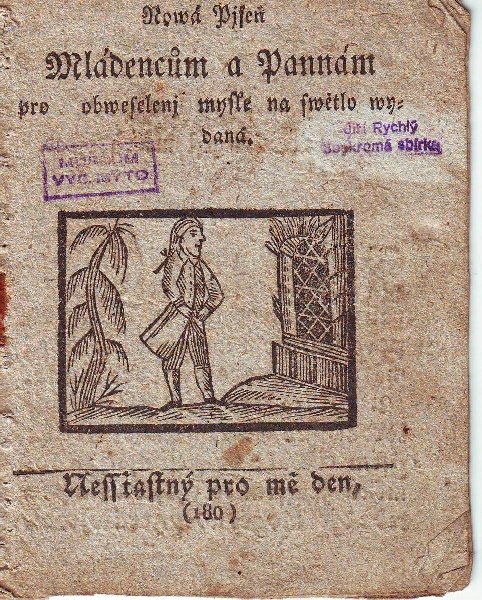 Nowá Pjseň
Mládencům a Pannám
pro obweselenj mysle na swětlo wy-
daná.
MUZEUM
VYS. MÝTO
Jiří Rychlý
Soukromá sbírka
Nessťastný pro mě den,
(180)